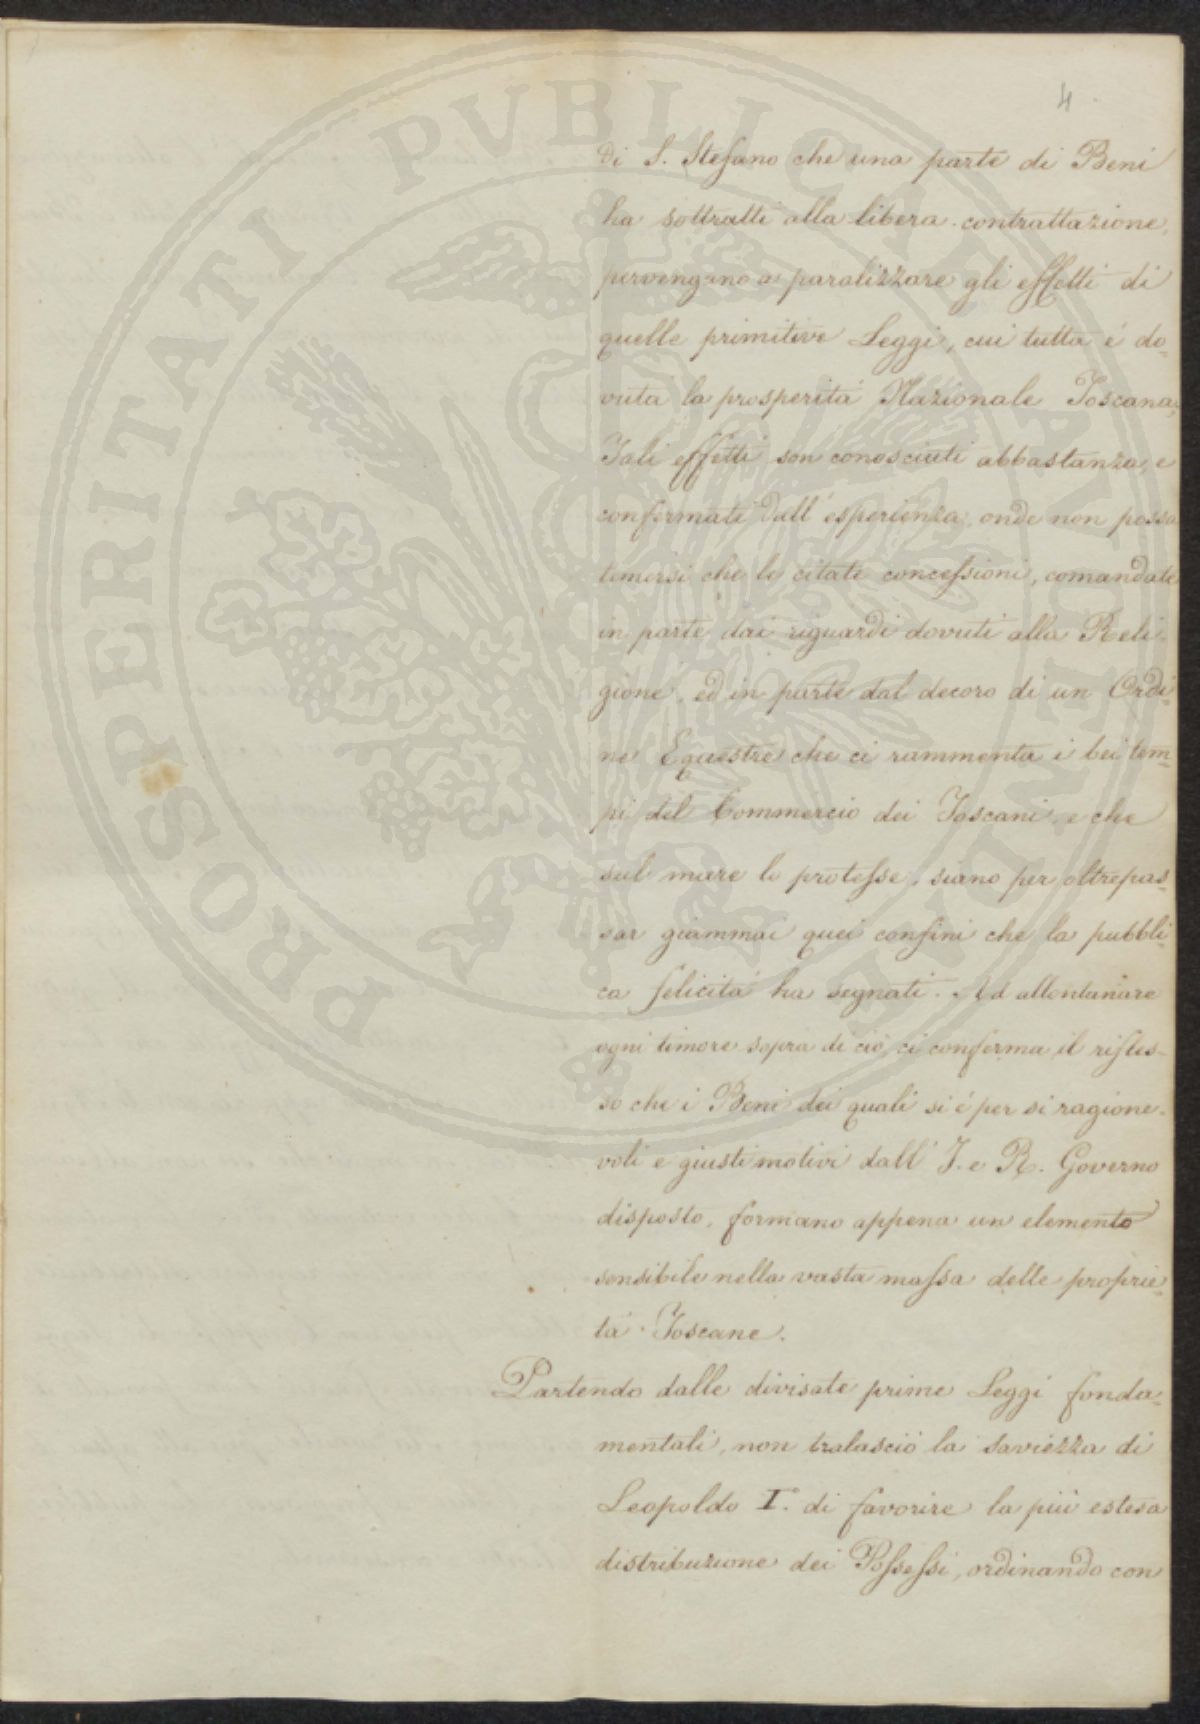 4.
di S. Stefano che una parte di Beni
ha sottratti alla libera contrattazione,
pervengano a paralizzare gli effetti di
quelle primitive Leggi, cui tutta é do-
vuta la prosperitá Nazionale Toscana,
Tali effetti son conosciuti abbastanza, e
confermati dall'esperienza, onde non possa
temersi che le citate concessioni, comandate
in parte dai riguardi dovuti alla Reli-
gione, ed in parte dal decoro di un Ordi-
ne Equestre che ci rammenta i bei tem-
pi del Commercio dei Toscani, e che
sul mare lo protesse, siano per oltrepas-
sar giammai quei confini che la pubbli-
ca felicitá ha segnati. Ad allontanare
ogni timore sopra di ció ci conferma il rifles-
so che i Beni dei quali si é per si ragione-
voli e giusti motivi dall'I. e R. Governo
disposto, formano appena un elemento
sensibile nella vasta massa delle proprie-
tá Toscane.
Partendo dalle divisate prime Leggi fonda-
mentali, non tralasció la saviezza di
Leopoldo I.° di favorire la piú estesa
distribuzione dei Possessi, ordinando con
PROSPERITATI PUBLICAE AUGENDAE